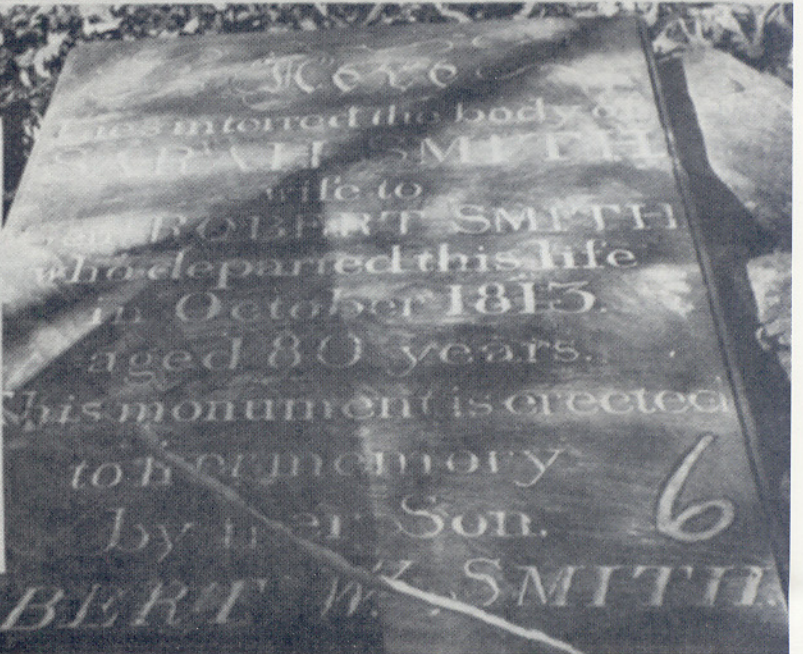 Here
Lies interred the body of
SARAH SMITH
wife to
ROBERT SMITH
who departed this life
in October 1813.
aged 80 years.
This monument is erected
to her memory
by her Son.
BERT W. SMITH.
6